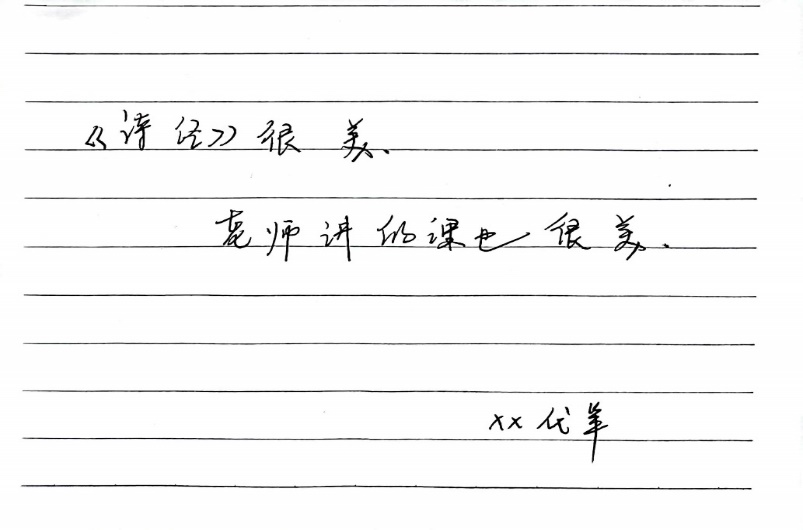 《诗经》很美.
老师讲的课也很美.
xx代笔